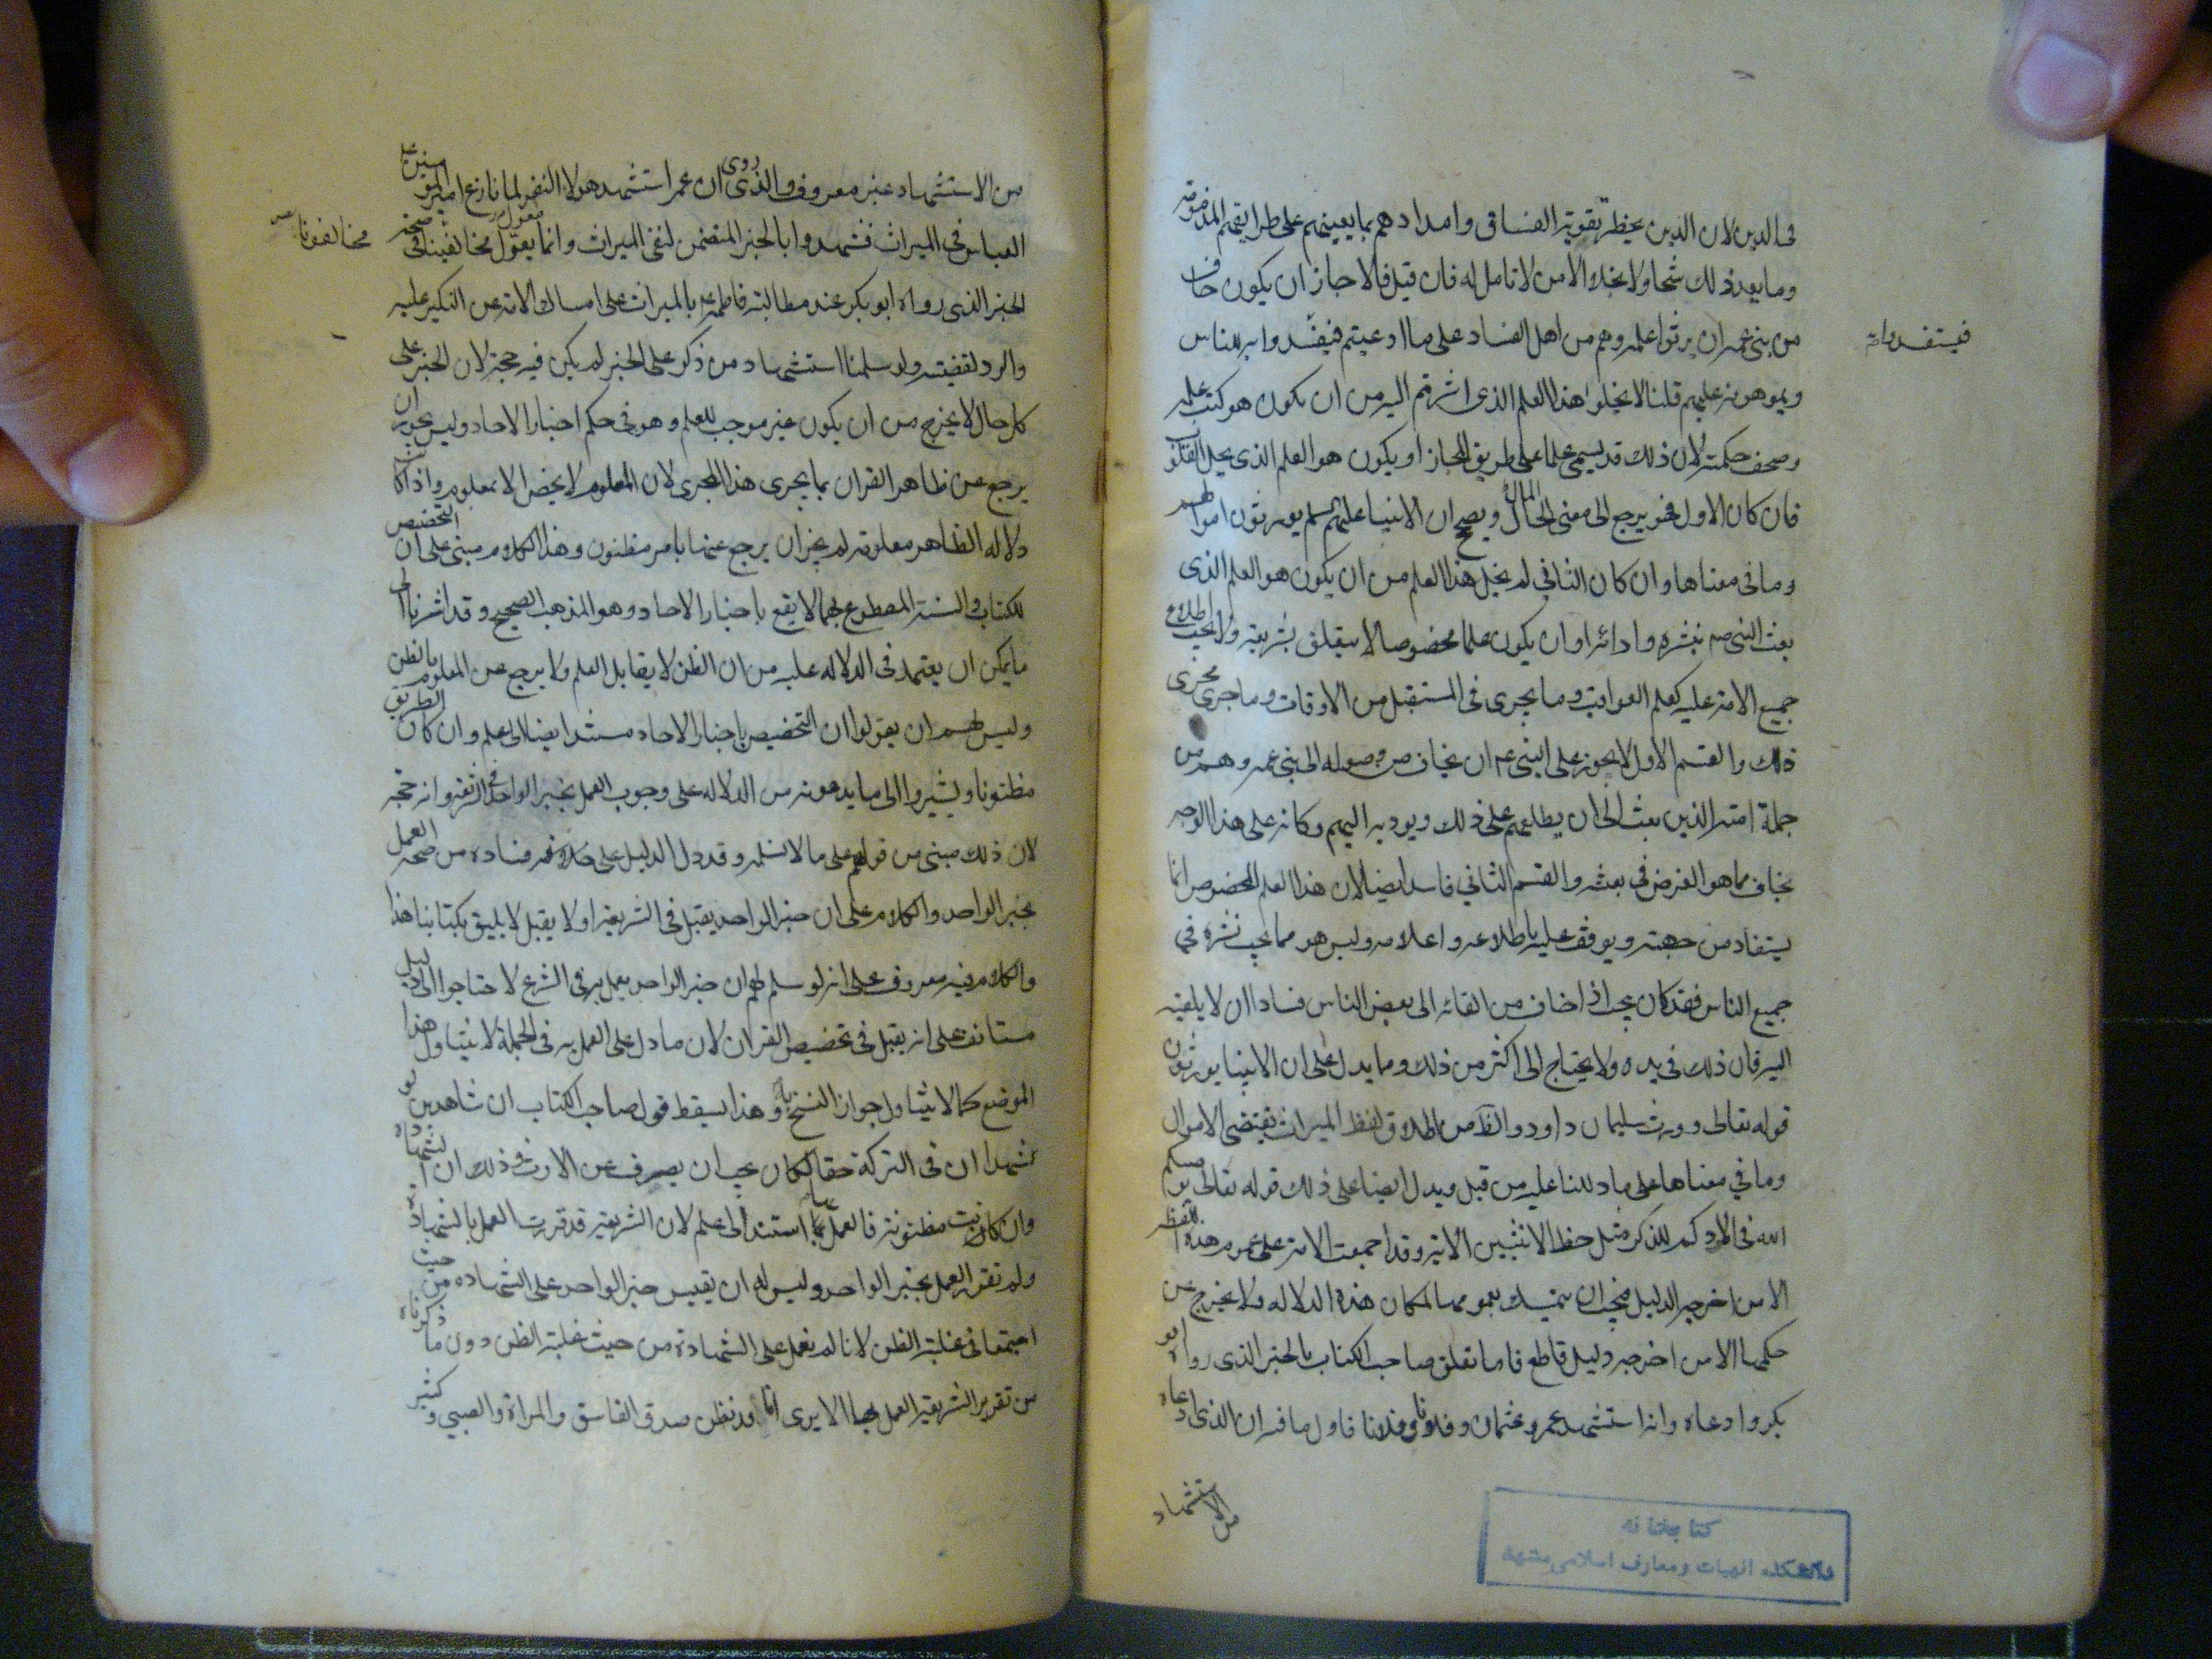 فى الدين لان الدين يحظر تقوية الفساق وامدادهم بما يعينهم على طرايقهم المذمومة
وما يعد ذلك شحا ولا بخلا الا من لا تامل له فان قيل فالا جاز ان يكون خاف
من بنى عمه ان يرثوا علمه وهم من اهل الفساد على ما ادعيتم فيفسدوا به الناس
فيستفسدوا به
ويموهونه عليهم قلنا لا يخلوا هذا العلم الذى اشرتم اليه من ان يكون هو كتب علمه
وصحف حكمته لان ذلك قد يسمى علما على طريق المجاز او يكون هو العلم الذى يحل القلوب
فان كان الاول فهو يرجع الى معنى المال ويصح ان الانبياء عليهم السلم يورثون اموالهم
وما فى معناها وان كان الثانى لم يخل هذا العلم من ان يكون هو العلم الذى
بعث النبى صم بنشره وادائه او ان يكون علما مخصوصا لا يتعلق بشريعته ولا يجب اطلاع
جميع الامة عليه كعلم العواقب وما يجرى فى المستقبل من الاوقات وما جرى مجرى
ذلك والقسم الاول لا يجوز على النبى عم ان يخاف من وصوله الى بنى عمه وهم من
جملة امته الذين بعث الى ان يطلعهم على ذلك ويوديه اليهم وكانه على هذا الوجه
يخاف مما هو الغرض فى بعثه والقسم الثانى فاسد ايضا لان هذا العلم المخصوص انما
يستفاد من جهته ويوقف عليه باطلاعه واعلامه وليس هو مما يجب نشره فى
جميع الناس فقد كان يجب اذا خاف من القائه الى بعض الناس فسادا ان لا يلقيه
اليه فان ذلك فى يده ولا يحتاج الى اكثر من ذلك ومما يدل على ان الانبيا يورثون
قوله تعالى وورث سليمان داود والظ من اطلاق لفظ الميراث يقتضى الاموال
وما في معناها على ما دللنا عليه من قبل ويدل ايضا على ذلك قوله تعالى يوصيكم
الله فى اولادكم للذكر مثل حظ الانثيين الاية وقد اجمعت الامة على عموم هذه اللفظة
الا من اخرجه الدليل فيجب ان يتمسك بعمومها لمكان هذه الدلاله ولا يخرج عن
حكمها الا من اخرجه دليل قاطع فاما تعلق صاحب الكتاب بالخبر الذى رواه ابو
بكر وادعاه وانه استشهد عمر وعثمان وفلانا وفلانا فاول ما فيه ان الذى ادعاه
من الاستشهاد
كتابخانه
دانشكده الهيات ومعارف اسلامى مشهد
من الاستشهاد غير معروف والذى روى ان عمر استشهد هولاء النفر لما نازع امير المومنين عليه
العباس فى الميراث فشهدوا بالخبر المتضمن لنفى الميراث وانما يعول مخالفينا فى صحة
مخالفونا
الخبر الذى رواه ابو بكر عند مطالبة فاطمة ع بالميراث على امساك الامة عن النكير عليه
والرد لقضيته ولو سلمنا استشهاد من ذكر على الخبر لم يكن فيه حجة لان الخبر على
كل حال لا يخرج من ان يكون غير موجب للعلم وهو فى حكم اخبار الاحاد وليس يجوز ان
يرجع عن ظاهر القران بما يجرى هذا المجرى لان المعلوم لا يخص الا بمعلوم واذا كانت
دلاله الظاهر معلومة لم يجز ان يرجع عنها بامر مظنون وهذا الكلام مبنى على ان التخصيص
للكتاب والسنة المقطوع بهما لا يقع باخبار الاحاد وهو المذهب الصحيح وقد اشرنا الى
ما يمكن ان يعتمد فى الدلاله عليه من ان الظن لا يقابل العلم ولا يرجع عن المعلوم بالظن
وليس لهم ان يقولوا ان التخصيص باخبار الاحاد مستند ايضا الى علم وان كان الطريق
مظنونا ويشيروا الى ما يدعونه من الدلاله على وجوب العمل بخبر الواحد فى الشريعة وانه حجه
لان ذلك مبنى من قولهم على ما لا نسلمه وقد دل الدليل على فساده من صحة العمل
بخبر الواحد والكلام على ان خبر الواحد يقبل فى الشريعة او لا يقبل لا يليق بكتابنا هذا
والكلام فيه معروف على انه لو سلم لهم ان خبر الواحد يعمل به فى الشرع لاحتاجوا الى دليل
مستانف على انه يقبل فى تخصيص القران لان ما دل على العمل به فى الجملة لا يتناول هذا
الموضع كما لا يتناول جواز النسخ به وهذا يسقط قول صاحب الكتاب ان شاهدين لو
شهدا ان فى التركة حقا لكان يجب ان يصرف عن الارث وذلك ان الشهادة
وان كانت مظنونة فالعمل بها استند الى علم لان الشريعة قد قررت العمل بالشهادة
ولم تقرر العمل بخبر الواحد وليس له ان يقيس خبر الواحد على الشهاده من حيث
اجتمعا فى غلبة الظن لانا لم نعمل على الشهادة من حيث غلبة الظن دون ما ذكرناه
من تقرير الشريعة العمل بها الا يرى انا قد نظن صدق الفاسق والمراة والصبي وكثير